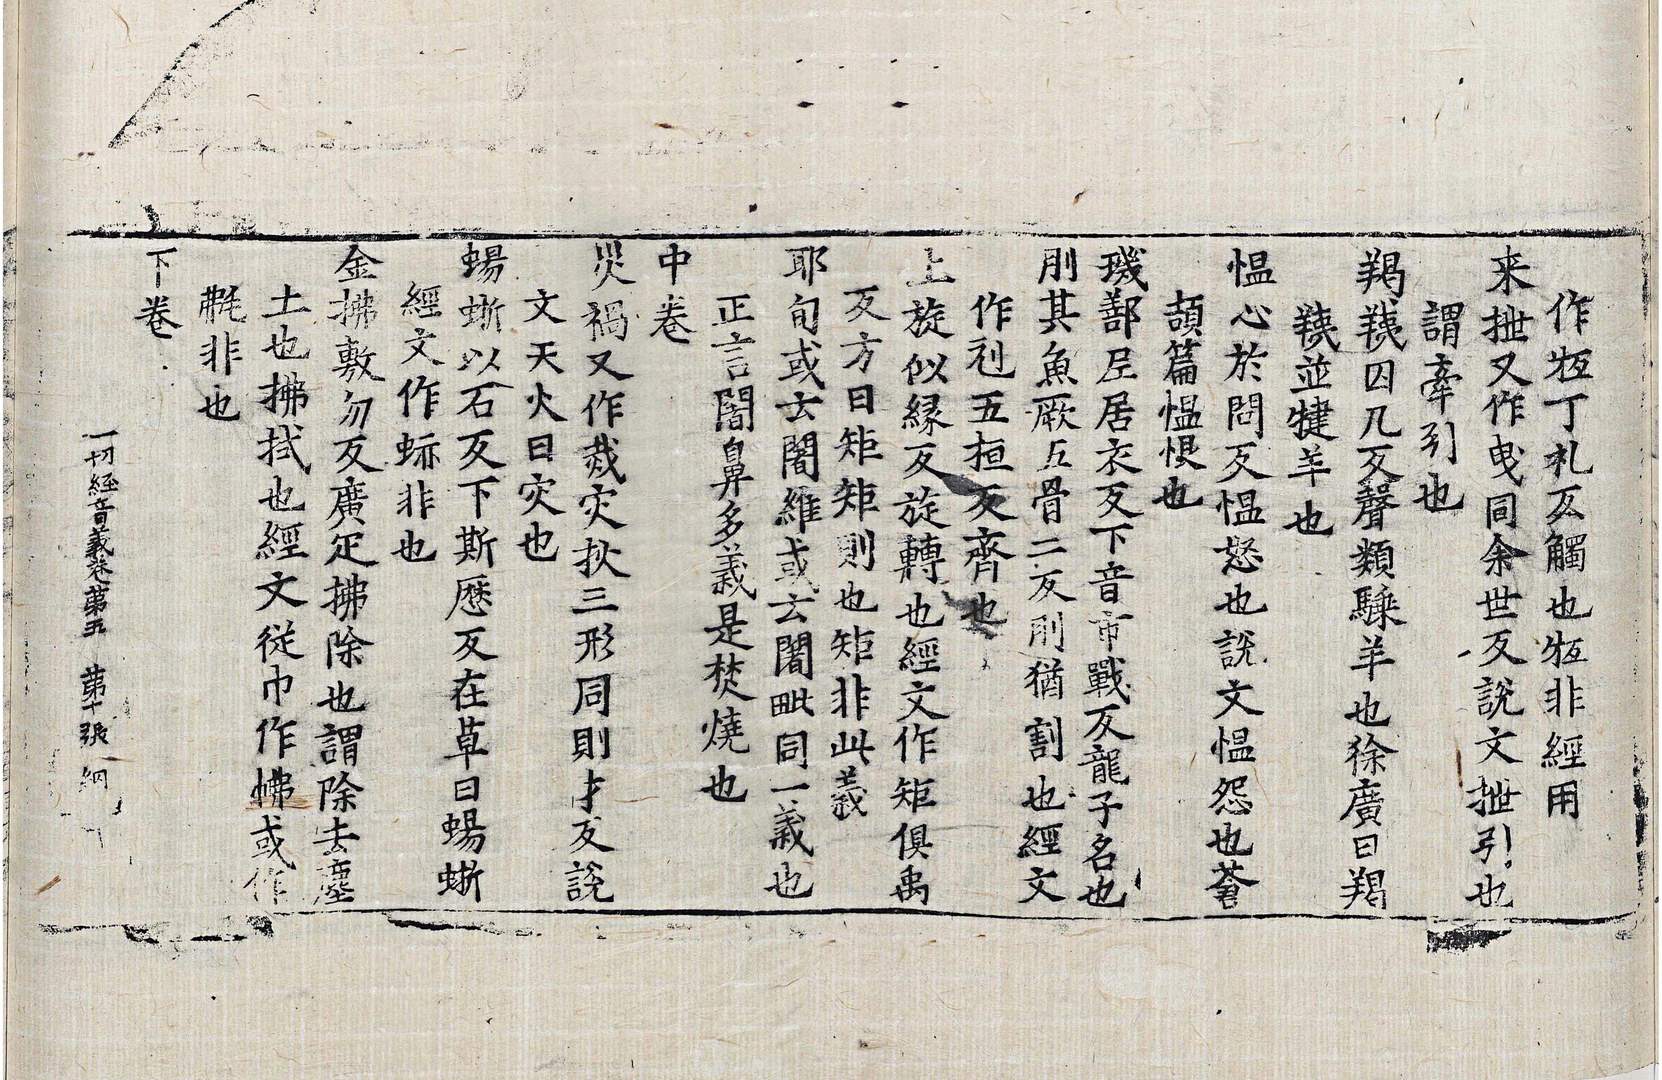 作牴丁礼反觸也牴非經用
来抴又作曳同余世反說文抴引也
謂牽引也
羯羠囚几反聲類騬羊也徐廣曰羯
羠並犍羊也
愠心於問反愠怒也說文愠怨也蒼
頡篇愠恨也
璣鄯居衣反下音市戰反龍子名也
刖其魚厥五骨二反刖猶割也經文
作刓五桓反齊也
上旋似縁反旋轉也經文作矩俱禹
反方曰矩矩則也矩非此義
耶旬或云闍維或云闍毗同一義也
正言闍鼻多義是焚燒也
中卷
災禍又作烖灾㶣三形同則才反說
文天火曰灾也
蝪蜥以石反下斯歷反在草曰蝪蜥
經文作蛎非也
金拂敷勿反廣疋拂除也謂除去塵
土也拂拭也經文從巾作怫或作
𣯡非也
下卷
一切經音義卷第五 第十張 綱